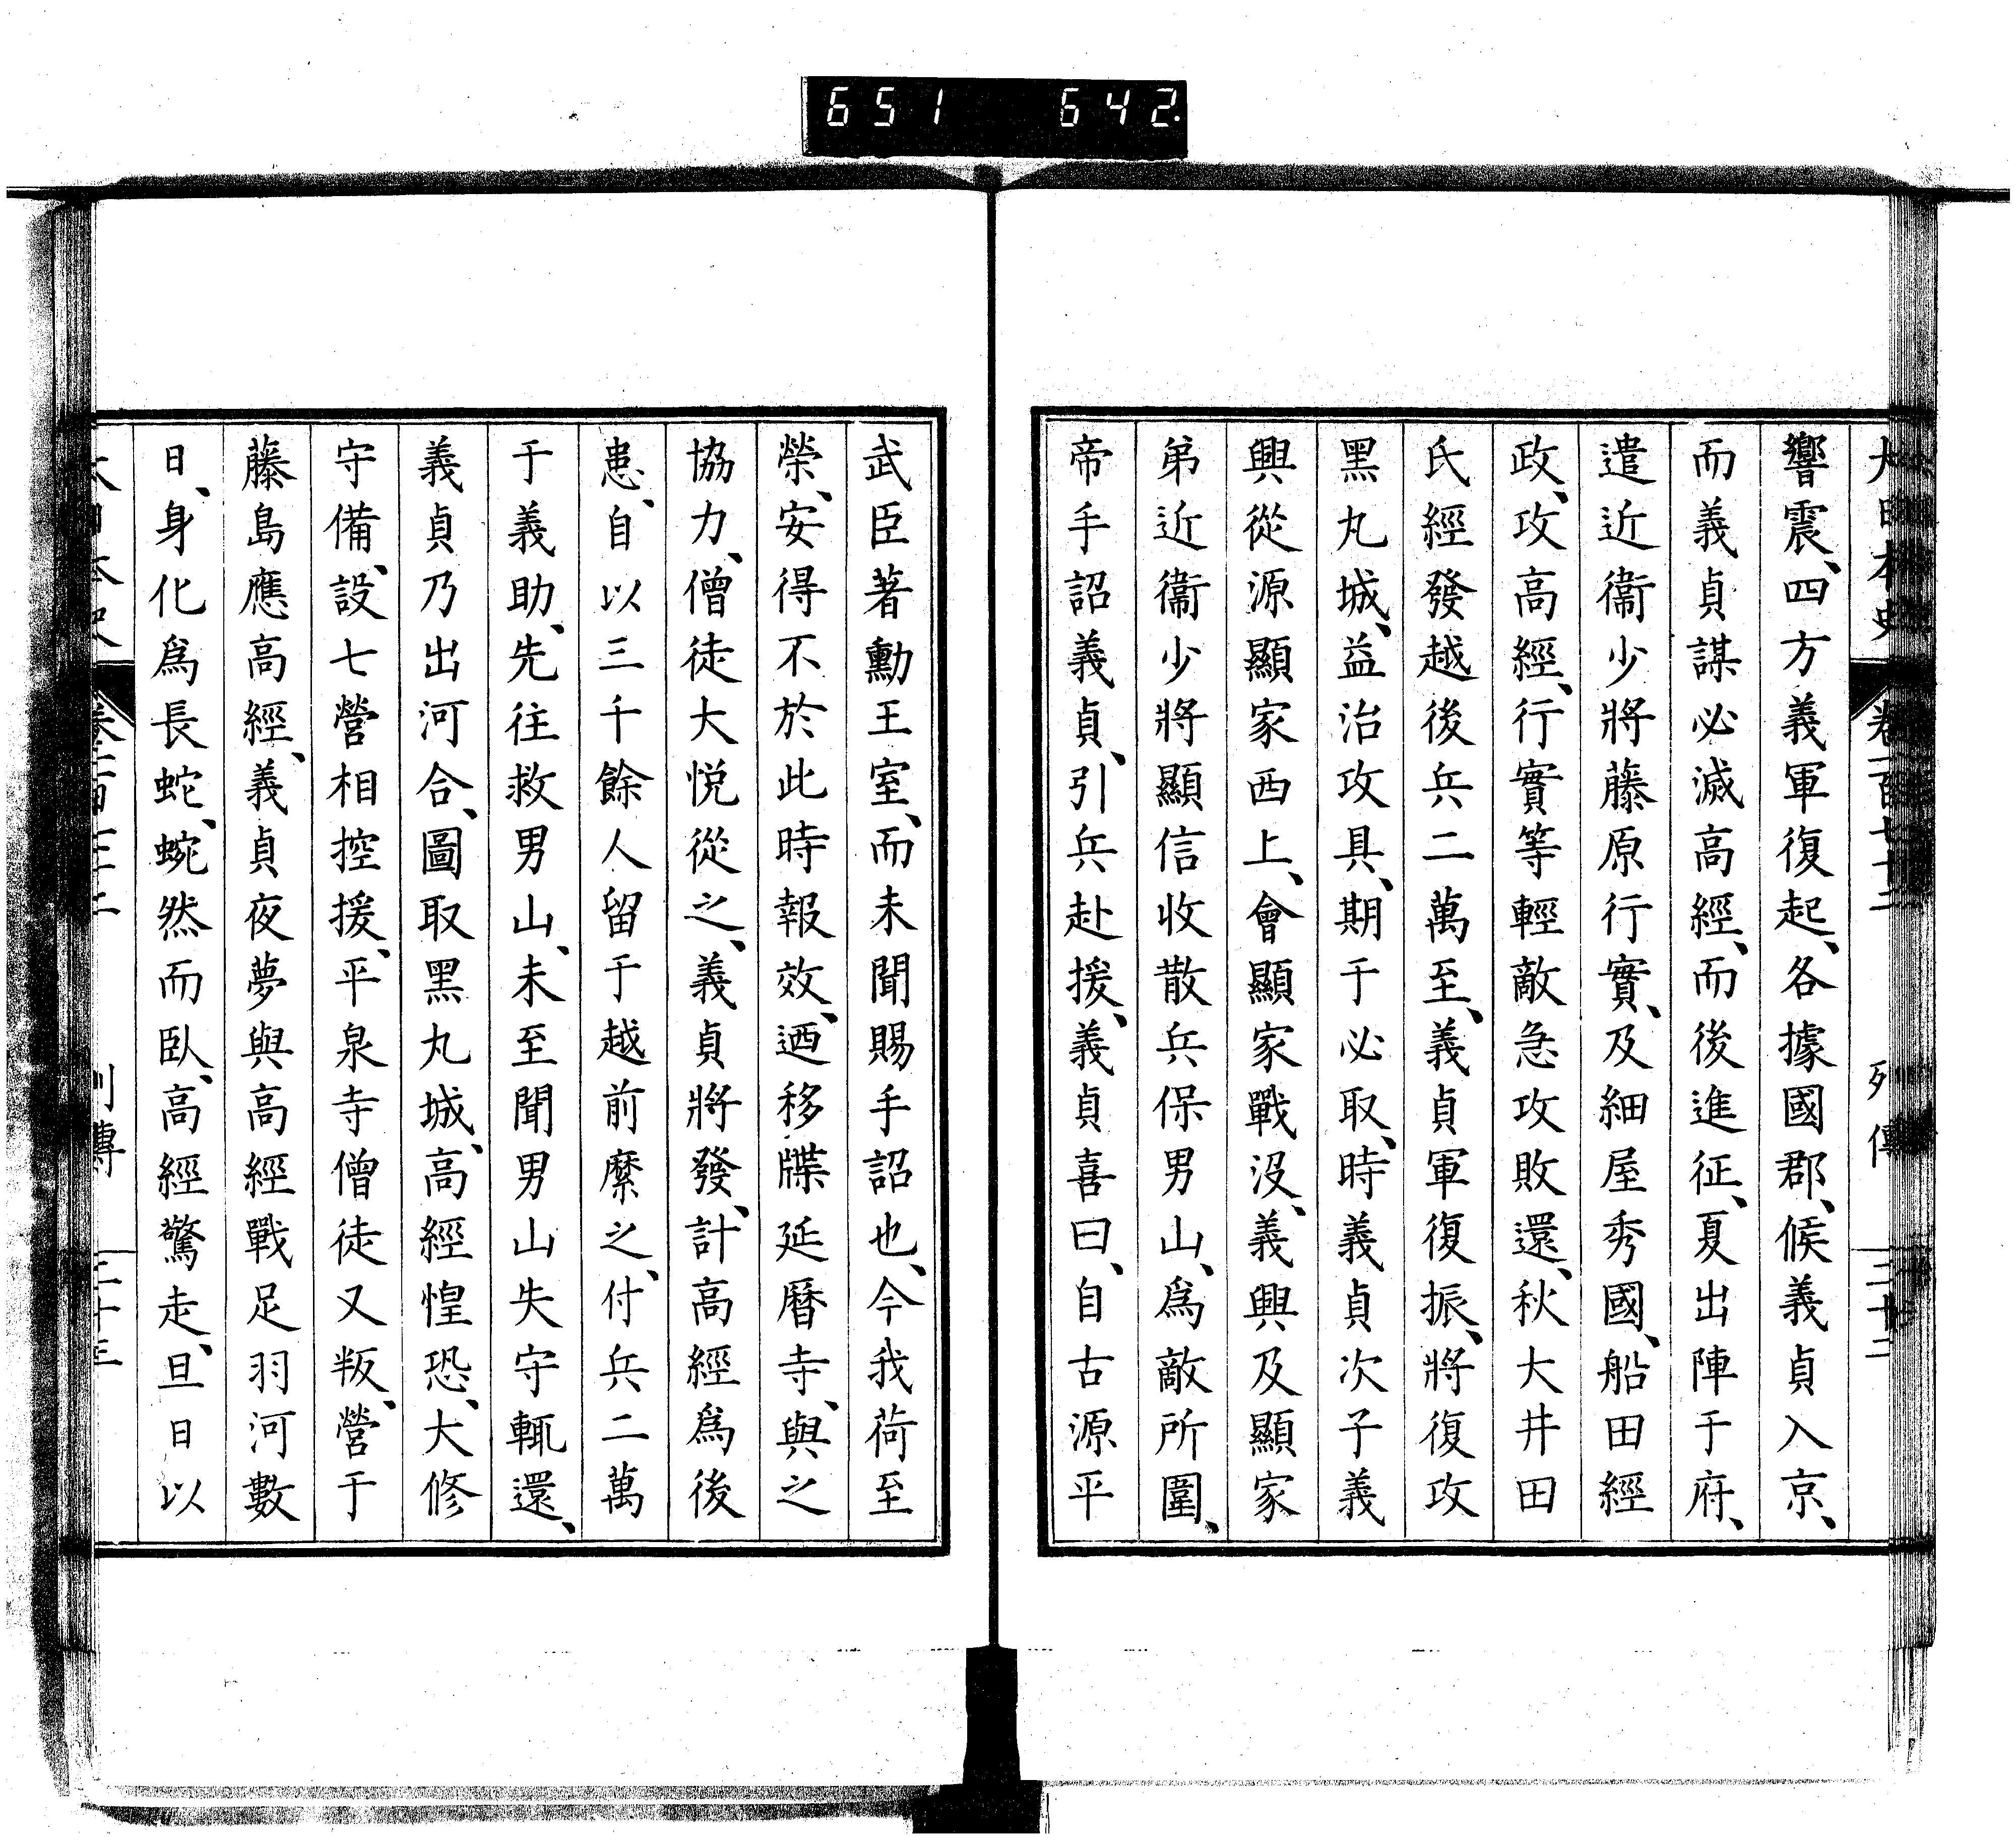 651 642
大日本史 卷一百七十二 列傳 三十二
響震、四方義軍復起、各據國郡、候義貞入京、
而義貞謀必滅高經、而後進征、夏出陣于府、
遣近衞少將藤原行實、及細屋秀國、船田經
政、攻高經、行實等輕敵急攻敗還、秋大井田
氏經發越後兵二萬至、義貞軍復振、將復攻
黑丸城、益治攻具、期于必取、時義貞次子義
興從源顯家西上、會顯家戰沒、義興及顯家
弟近衞少將顯信收散兵保男山、爲敵所圍、
帝手詔義貞、引兵赴援、義貞喜曰、自古源平
武臣著勳王室、而未聞賜手詔也、今我荷至
榮、安得不於此時報效、迺移牒延曆寺、與之
協力、僧徒大悅從之、義貞將發、計高經爲後
患、自以三千餘人留于越前縻之、付兵二萬
于義助、先往救男山、未至聞男山失守輒還、
義貞乃出河合、圖取黑丸城、高經惶恐、大修
守備、設七營相控援、平泉寺僧徒又叛、營于
藤島應高經、義貞夜夢與高經戰足羽河數
日、身化爲長蛇、蜿然而臥、高經驚走、旦日以
大日本史 列傳